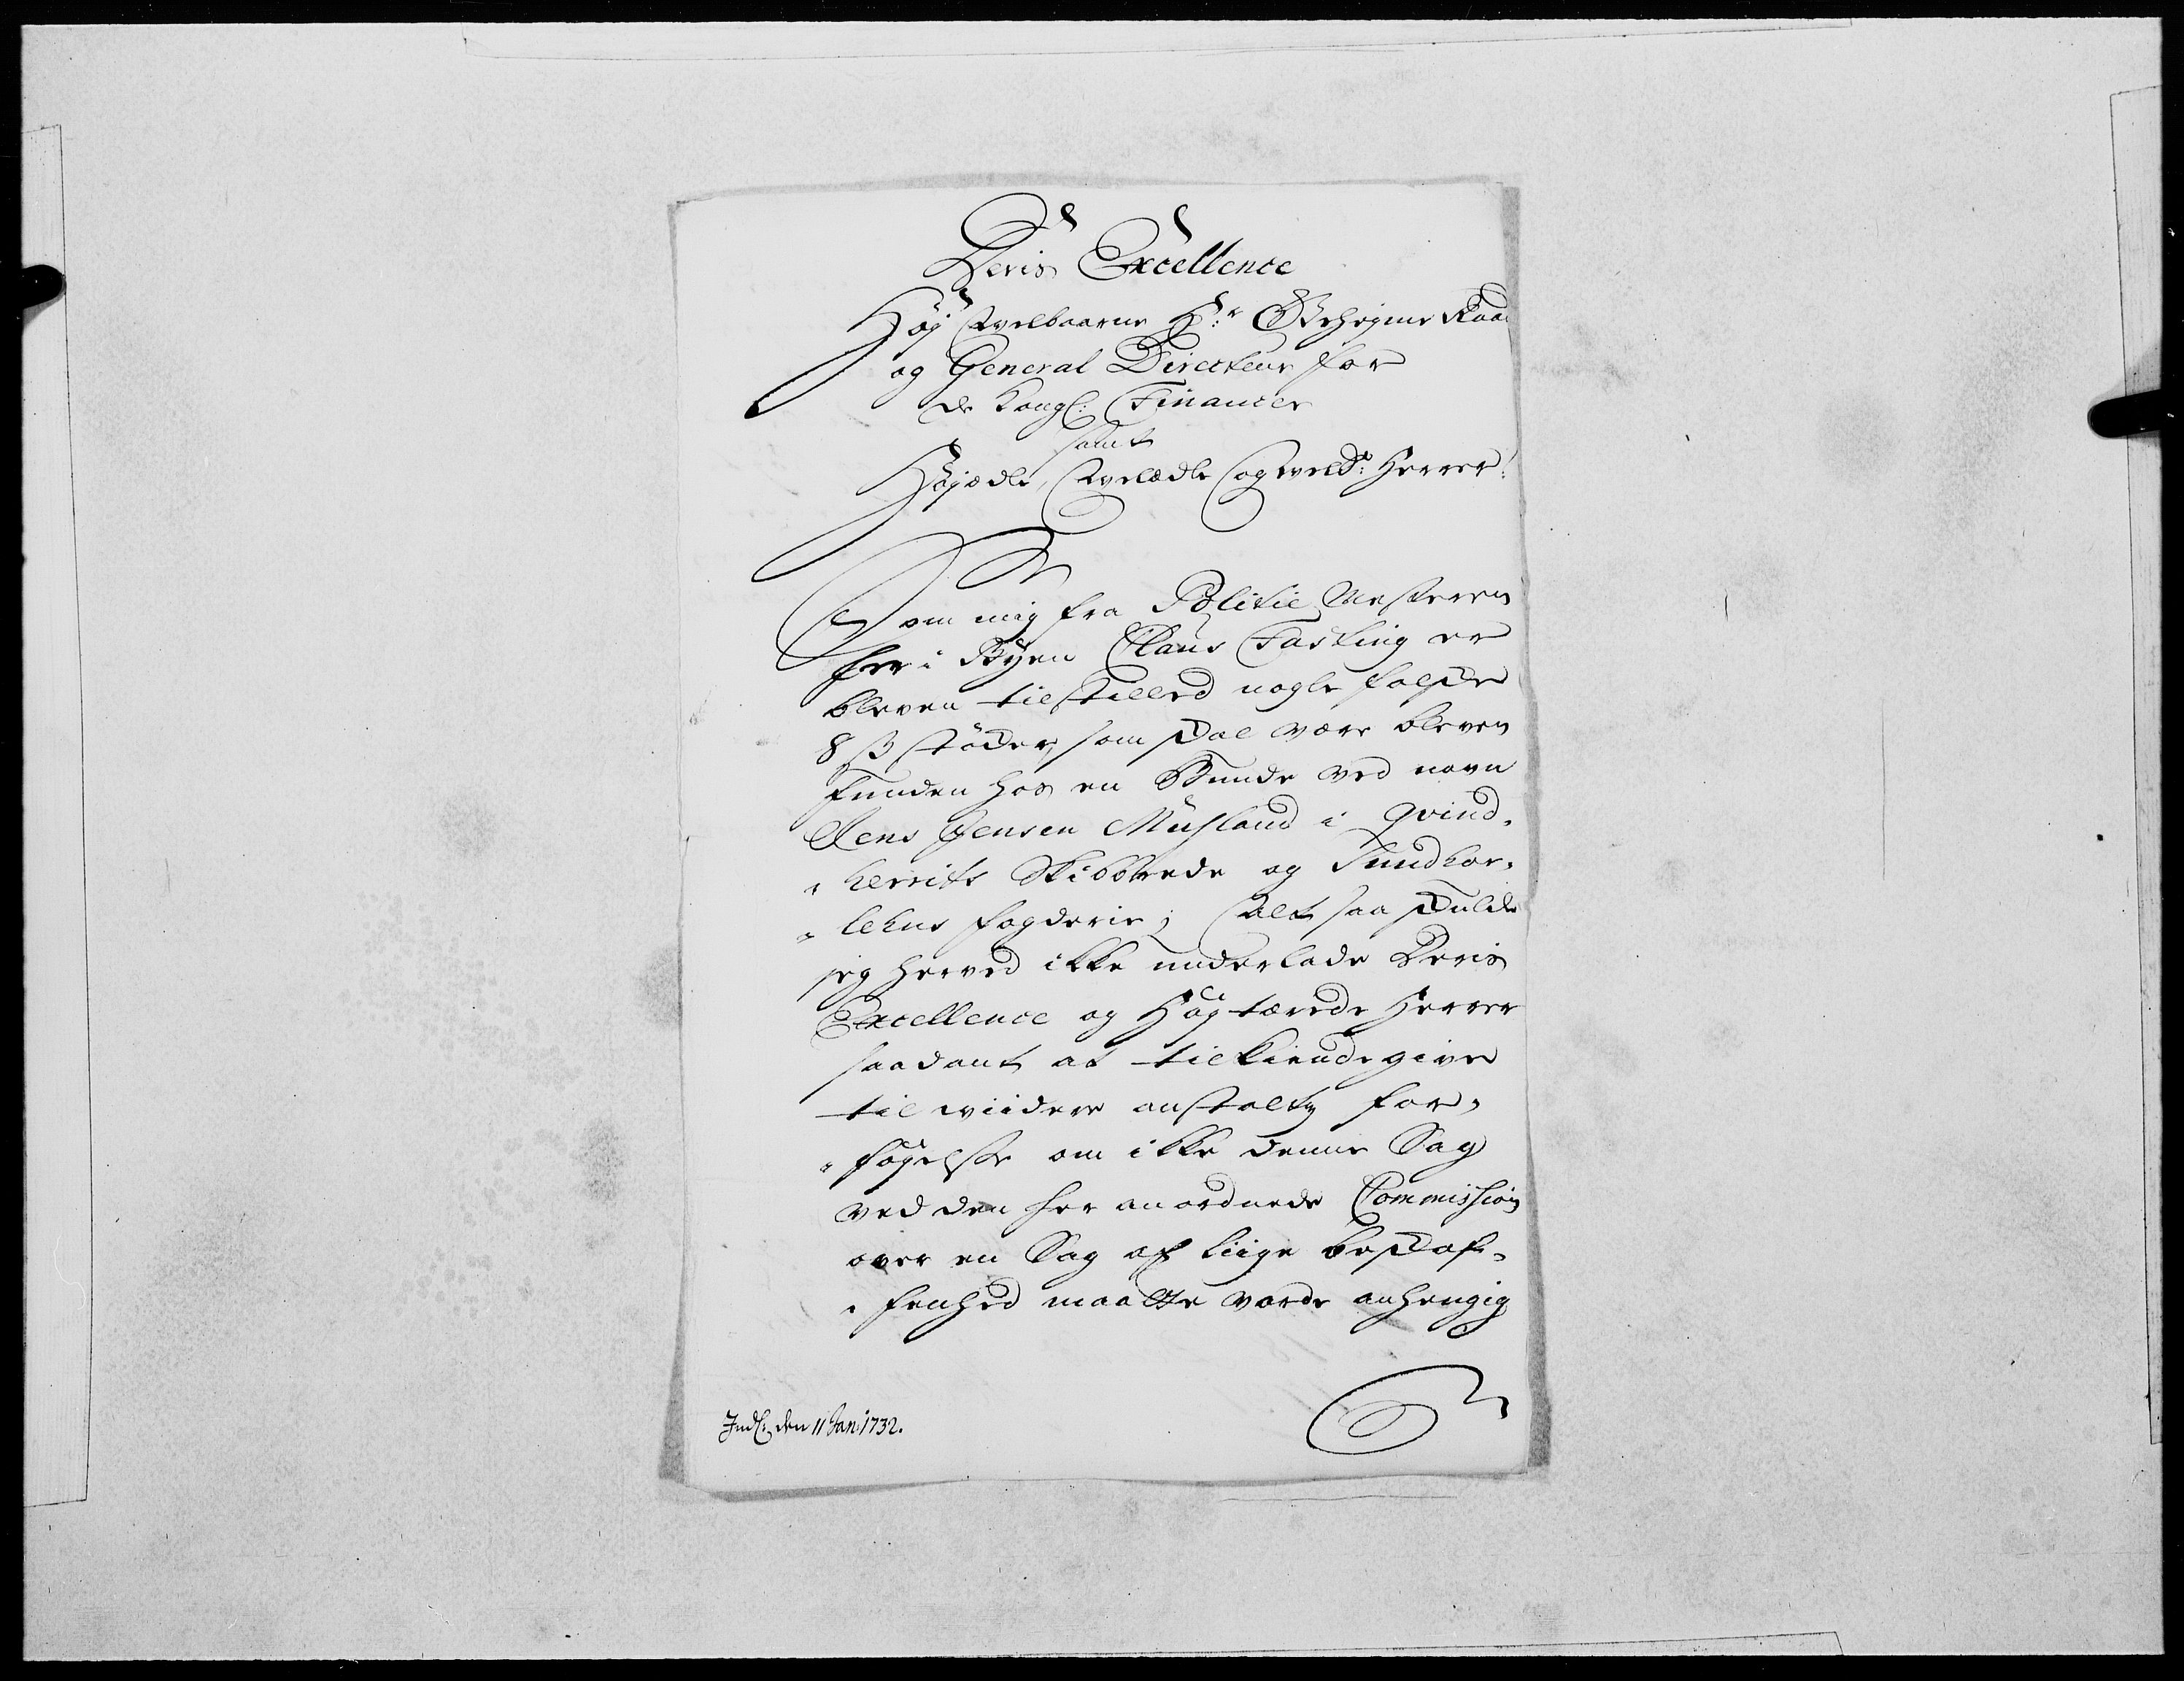 Deris Excellence
Høj Welbaarne Hr: Geheime Raad
og General Directeur for
de Kongl: Financer
samt
Højædle, Welædle og Weld: Herrer!
Som mig fra Politie Mesteren
her i Byen Claus Fasting er
bleven tilstilled nogle falske
8 ß støder, som skal være bleven
funden hos en Bunde ved navn
Jens Jensen Musland i Qvind-
herrits Skibbrede og Sundhor-
lehns fogderie; Alt saa skulde
jeg herved ikke underlade Deris
Excellence og Høgtærede Herrer
saadant at tilkiendegive
til widere anstaltz for-
føyelse om ikke denne Sag
ved den her anordnede Commission
over en Sag af liige beskaf-
fenhed maatte vorde anhengig
Indl: den 11 Jan: 1732.